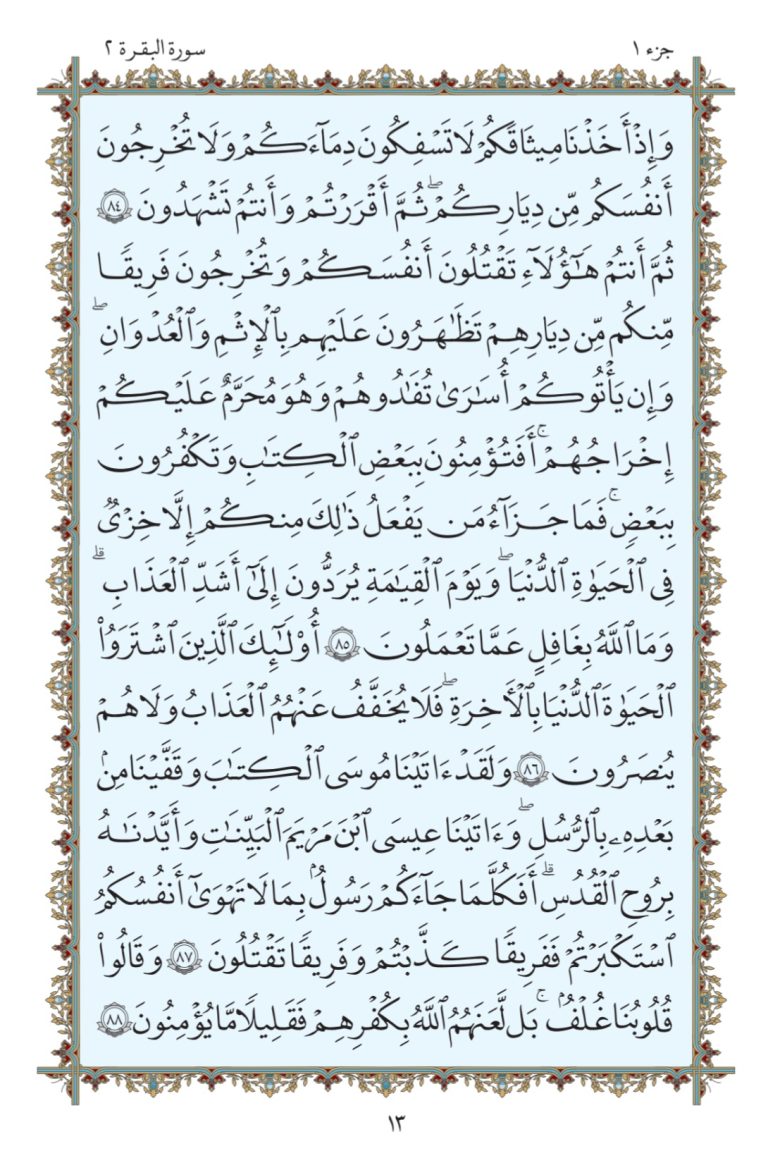 جزء ١
سورة البقرة ٢
وَإِذْ أَخَذْنَا مِيثَاقَكُمْ لَا تَسْفِكُونَ دِمَآءَكُمْ وَلَا تُخْرِجُونَ
أَنفُسَكُم مِّن دِيَارِكُمْ ۖ ثُمَّ أَقْرَرْتُمْ وَأَنتُمْ تَشْهَدُونَ ٨٤
ثُمَّ أَنتُمْ هَـٰٓؤُلَآءِ تَقْتُلُونَ أَنفُسَكُمْ وَتُخْرِجُونَ فَرِيقًا
مِّنكُم مِّن دِيَارِهِمْ تَظَـٰهَرُونَ عَلَيْهِم بِٱلْإِثْمِ وَٱلْعُدْوَانِ ۖ
وَإِن يَأْتُوكُمْ أُسَـٰرَىٰ تُفَـٰدُوهُمْ وَهُوَ مُحَرَّمٌ عَلَيْكُمْ
إِخْرَاجُهُمْ ۚ أَفَتُؤْمِنُونَ بِبَعْضِ ٱلْكِتَـٰبِ وَتَكْفُرُونَ
بِبَعْضٍ ۚ فَمَا جَزَآءُ مَن يَفْعَلُ ذَٰلِكَ مِنكُمْ إِلَّا خِزْىٌ
فِى ٱلْحَيَوٰةِ ٱلدُّنْيَا ۖ وَيَوْمَ ٱلْقِيَـٰمَةِ يُرَدُّونَ إِلَىٰٓ أَشَدِّ ٱلْعَذَابِ ۗ
وَمَا ٱللَّهُ بِغَـٰفِلٍ عَمَّا تَعْمَلُونَ ٨٥ أُو۟لَـٰٓئِكَ ٱلَّذِينَ ٱشْتَرَوُا۟
ٱلْحَيَوٰةَ ٱلدُّنْيَا بِٱلْـَٔاخِرَةِ ۖ فَلَا يُخَفَّفُ عَنْهُمُ ٱلْعَذَابُ وَلَا هُمْ
يُنصَرُونَ ٨٦ وَلَقَدْ ءَاتَيْنَا مُوسَى ٱلْكِتَـٰبَ وَقَفَّيْنَا مِنۢ
بَعْدِهِۦ بِٱلرُّسُلِ ۖ وَءَاتَيْنَا عِيسَى ٱبْنَ مَرْيَمَ ٱلْبَيِّنَـٰتِ وَأَيَّدْنَـٰهُ
بِرُوحِ ٱلْقُدُسِ ۗ أَفَكُلَّمَا جَآءَكُمْ رَسُولٌۢ بِمَا لَا تَهْوَىٰٓ أَنفُسُكُمُ
ٱسْتَكْبَرْتُمْ فَفَرِيقًا كَذَّبْتُمْ وَفَرِيقًا تَقْتُلُونَ ٨٧ وَقَالُوا۟
قُلُوبُنَا غُلْفٌۢ ۚ بَل لَّعَنَهُمُ ٱللَّهُ بِكُفْرِهِمْ فَقَلِيلًا مَّا يُؤْمِنُونَ ٨٨
١٣